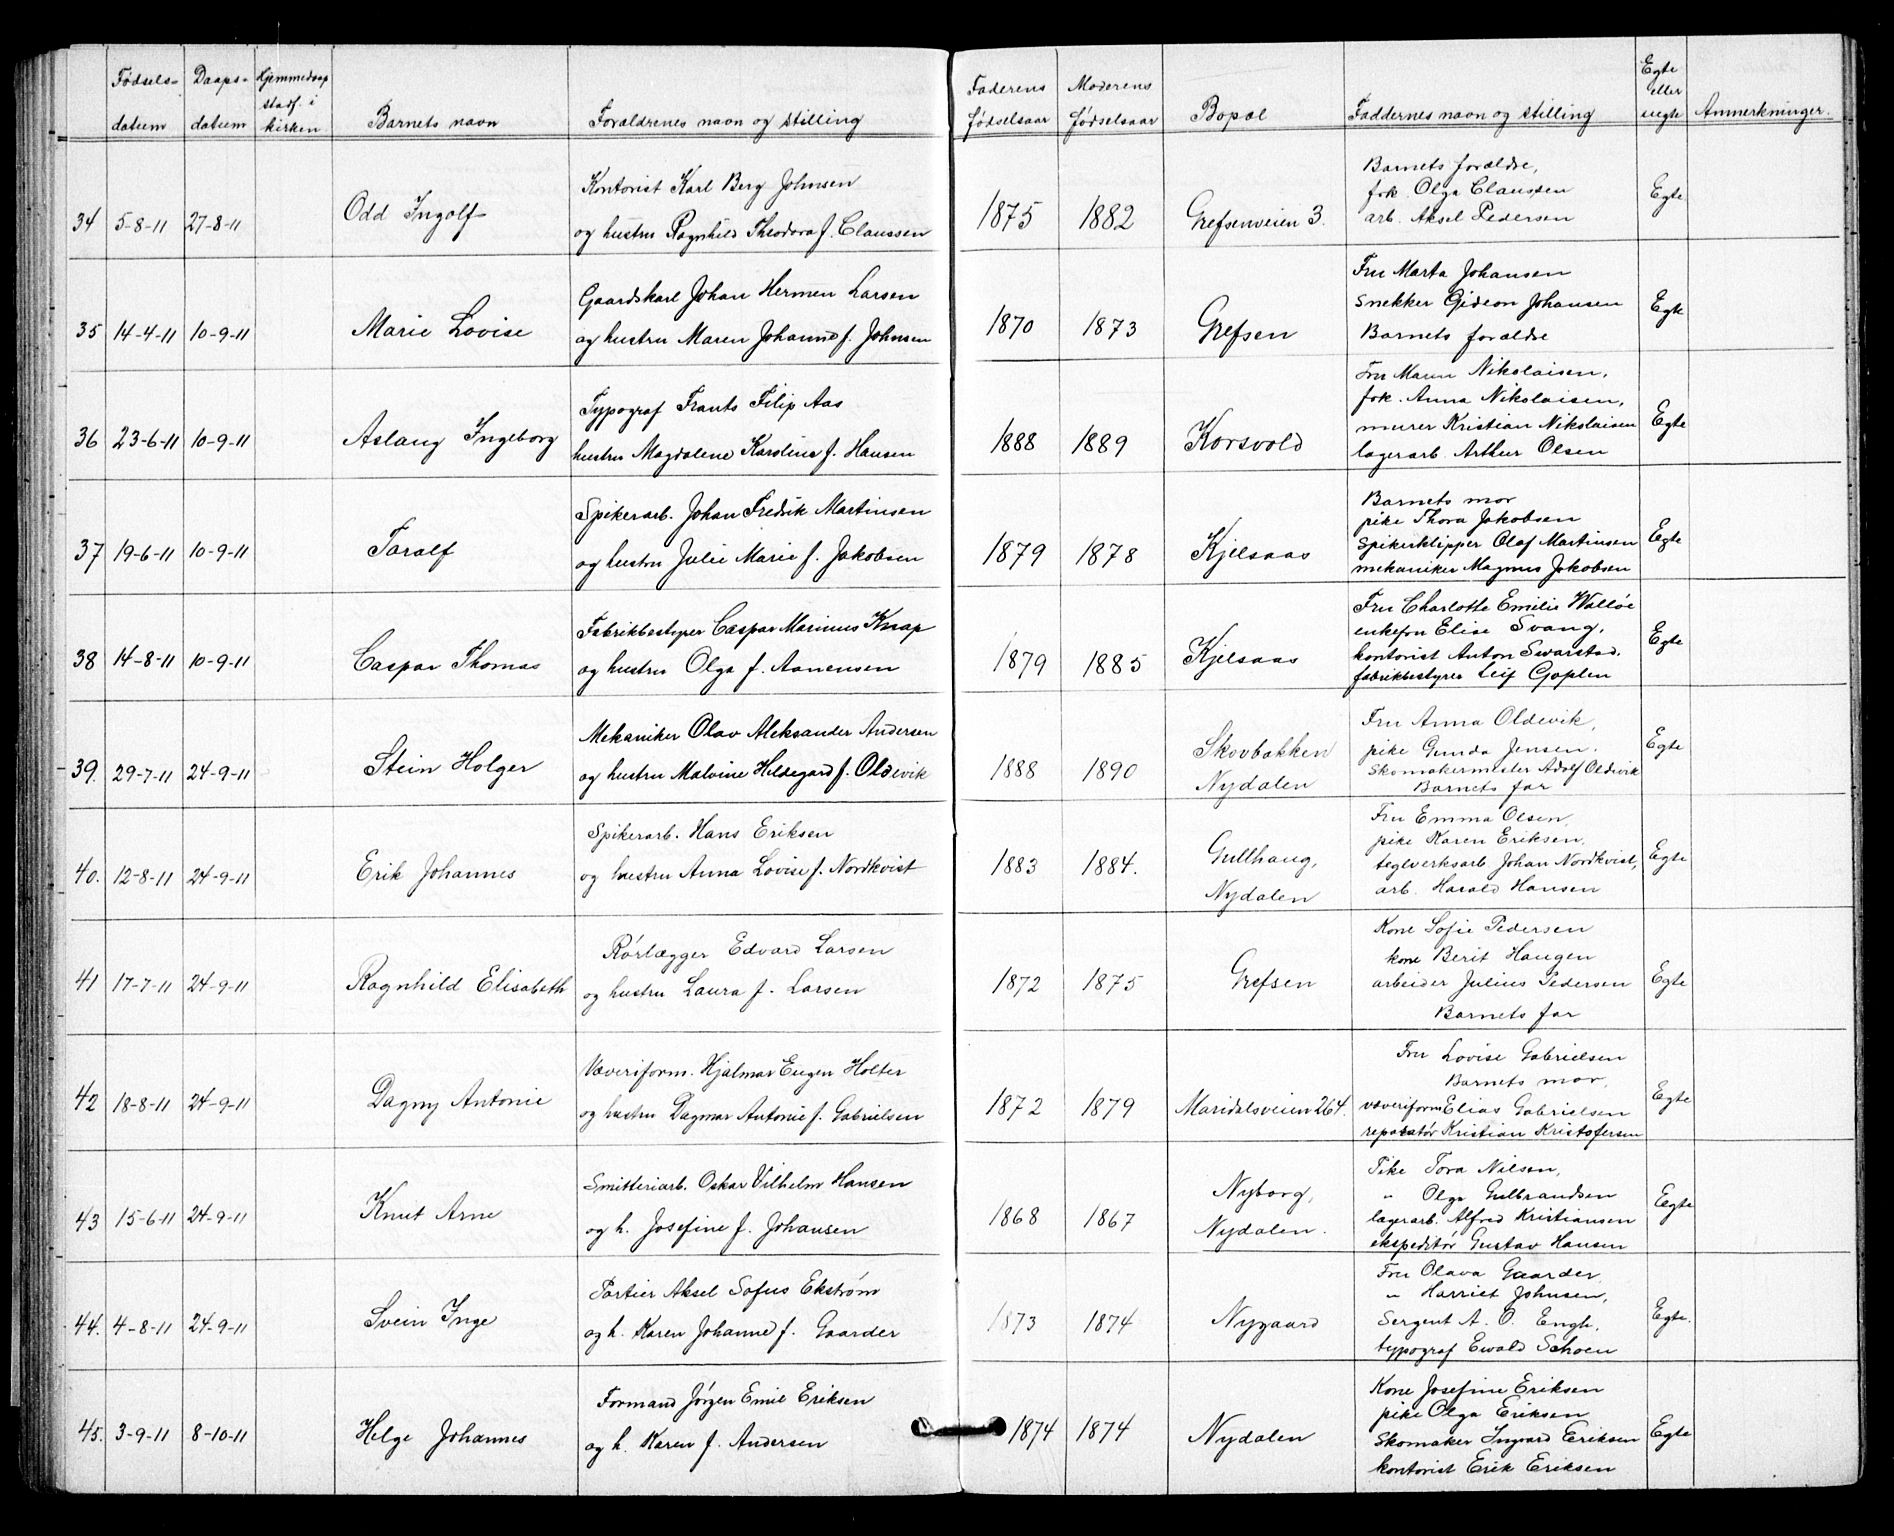 Fødsels- Daaps- Hjemmedaap Faderens Moderens Egte
datum datum stadf. i kirken Barnets navn Forældrenes navn og stilling fødselsaar fødselsaar Bopæl Faddernes navn og stilling eller uegte Anmerkninger.
34 5-8-11 27-8-11 Odd Ingolf
Kontorist Karl Berg Johnsen
og hustru Ragnhild Theodora f. Claussen
1875 1882 Grefsenveien 3.
Barnets forældre,
frk. Olga Claussen
arb. Aksel Pedersen
Egte
35 14-4-11 10-9-11 Marie Lovise
Gaardskarl Johan Hermen Larsen
og hustru Maren Johanne f. Johnsen
1870 1873 Grefsen
Fru Marta Johansen
Snekker Gideon Johansen
Barnets forældre
Egte
36 23-6-11 10-9-11 Aslaug Ingeborg
Typograf Frants Filip Aas
hustru Magdalene Karoline f. Hansen
1888 1889 Korsvold
Fru Maren Nikolaisen,
frk. Anna Nikolaisen,
murer Kristian Nikolaisen
lagerarb. Arthur Olsen
Egte
37 19-6-11 10-9-11 Taralf
Spikerarb. Johan Fredrik Martinsen
og hustru Julie Marie f. Jakobsen
1879 1878 Kjelsaas
Barnets mor
pike Thora Jakobsen
Spikerklipper Olaf Martinsen
mekaniker Magnus Jakobsen
Egte
38 14-8-11 10-9-11 Caspar Thomas
Fabrikbestyrer Caspar Marinus Knap
og hustru Olga f. Aanensen
1879 1885 Kjelsaas
Fru Charlotte Emilie Walløe
enkefru Elise Svang,
kontorist Anton Swarstad.
fabrikbestyrer Leif Goplen
Egte
39. 29-7-11 24-9-11 Stein Holger
Mekaniker Olav Aleksander Andersen
og hustru Malvine Hildegard f. Oldevik
1888 1890 Skovbakken
Nydalen
Fru Anna Oldevik,
pike Gunda Jensen.
Skomakermester Adolf Oldevik
Barnets far
Egte
40. 12-8-11 24-9-11 Erik Johannes
Spikerarb. Hans Eriksen
og hustru Anna Lovise f. Nordkvist
1883 1884. Gullhaug,
Nydalen
Fru Emma Olsen,
pike Karen Eriksen,
teglverksarb Johan Nordkvist,
arb. Harald Hansen
Egte
41 17-7-11 24-9-11 Ragnhild Elisabeth
Rørlægger Edvard Larsen
og hustru Laura f. Larsen
1872 1875 Grefsen
Kone Sofie Pedersen
kone Berit Haugen
arbeider Julius Pedersen
Barnets far
Egte
42 18-8-11 24-9-11 Dagny Antonie
Væveriform. Hjalmar Eugen Holter
og hustru Dagmar Antonie f. Gabrielsen
1872 1879 Maridalsveien 264.
Fru Lovise Gabrielsen
Barnets mor,
væveriform Elias Gabrielsen
reparatør Kristian Kristofersen
Egte
43 15-6-11 24-9-11 Knut Arne
Smitteriarb. Oskar Vilhelm Hansen
og h. Josefine f. Johansen
1868 1867 Nyborg,
Nydalen.
Pike Tora Nilsen,
" Olga Gulbrandsen
lagerarb. Alfred Kristiansen
ekspeditør Gustav Hansen
Egte
44. 4-8-11 24-9-11 Svein Inge
Portier Aksel Sofus Ekstrøm
og h. Karen Johanne f. Gaarder
1873 1874 Nygaard
Fru Olava Gaarder,
" Harriet Johnsen,
Sergent A. O. Engh,
typograf Ewald Schoen
Egte.
45. 3-9-11 8-10-11 Helge Johannes
Formand Jørgen Emil Eriksen
og h. Karen f. Andersen
1874 1874 Nydalen
Kone Josefine Eriksen
pike Olga Eriksen
Skomaker Ingvard Eriksen
kontorist Erik Eriksen
Egte